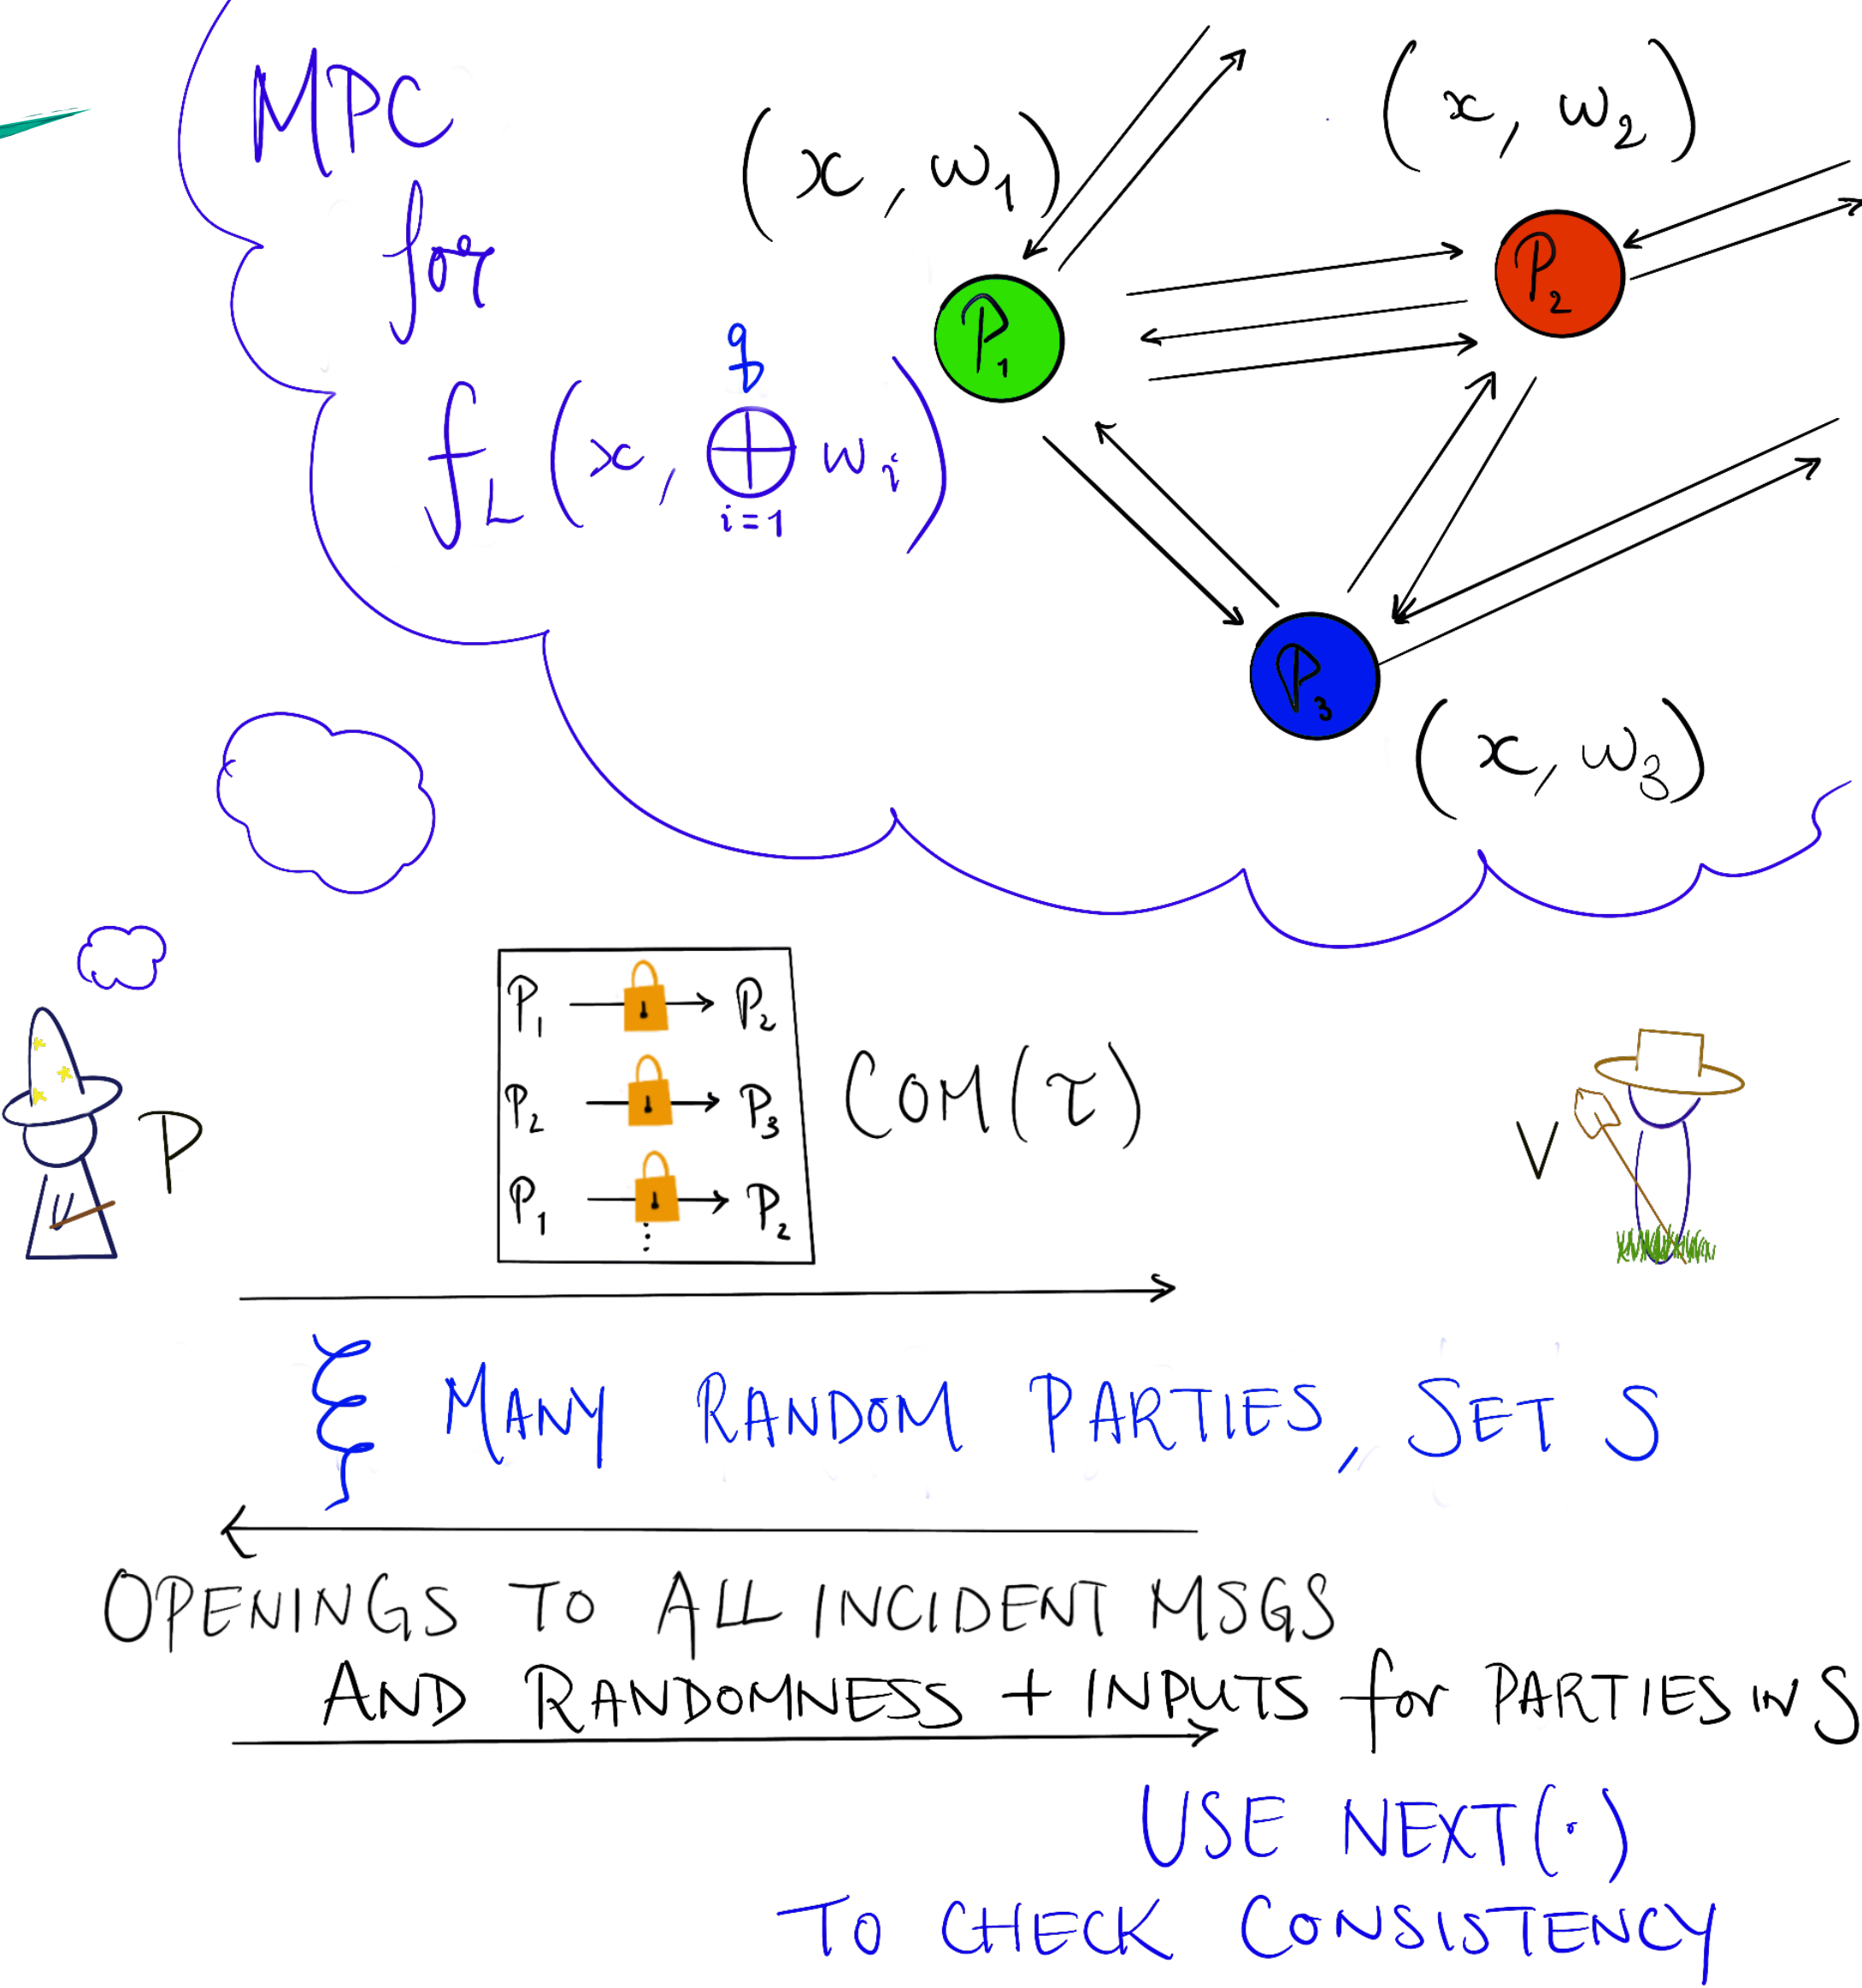 MPC
for
f_L (x, ⊕_{i=1}^{q} w_i)
(x, w_1)
(x, w_2)
P_1
P_2
P_3
(x, w_3)
P_1 → P_2
P_2 → P_3
P_1 → P_2
⋮
COM(τ)
P
V
ξ MANY RANDOM PARTIES, SET S
OPENINGS TO ALL INCIDENT MSGS
AND RANDOMNESS + INPUTS for PARTIES IN S
USE NEXT(·)
TO CHECK CONSISTENCY